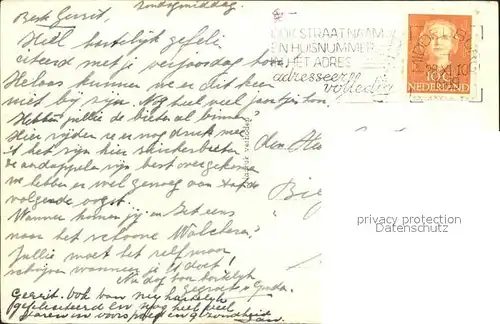 Beste Gerrit, Zondagmiddag.
Heel hartelijk gefeli
citeerd met je verjaardag hoor
Helaas kunnen we er dit keer
niet bij zijn. Nog heel veel jaartjes hoor
Hebben jullie de bieten al binnen?
Hier rijden ze er nog druk mee
't zijn hier suikerbieten
De aardappelen zijn best overgekomen
we hebben er wel genoeg aan tot de
volgende oogst.
Wanneer komen jij en Zet eens
naar het schoone Walcheren?
Jullie moet het zelf maar
schrijven wanneer je 't doet!
Nu dag hoor hartelijk
gegroet v Guda.
Gerrit. Ook van mij hartelijk
gefeliciteerd en nog heel veel
jaren in voorspoed en gezondheid
Jan.
OOK STRAATNAAM
EN HUISNUMMER
IN HET ADRES
adresseer
volledig
MIDDELBURG
10 C
NEDERLAND
Nadruk verboden
den He
Bie
privacy protection
Datenschutz